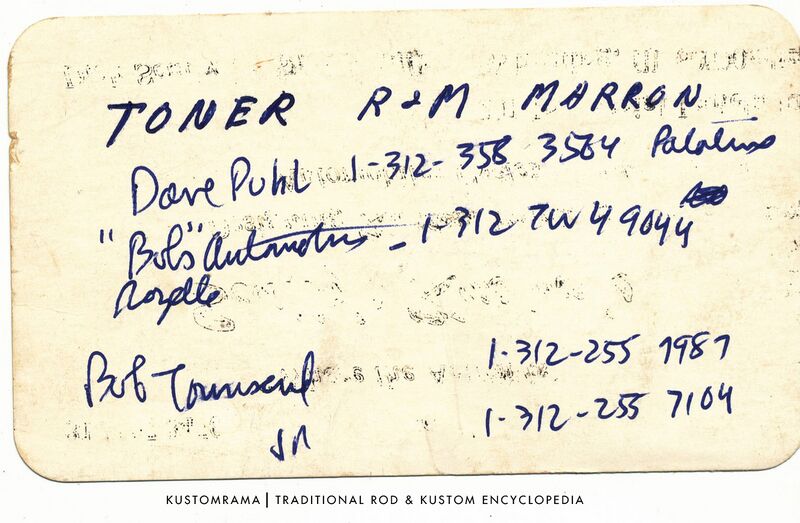 TONER R&M MARRON
Dave Puhl 1-312-358 3564 Palatine
"Bob's" Automotive - 1-312 TW4 9044
Bob Townsend 1-312-255 7987
JR 1-312-255 7104
KUSTOMRAMA | TRADITIONAL ROD & KUSTOM ENCYCLOPEDIA